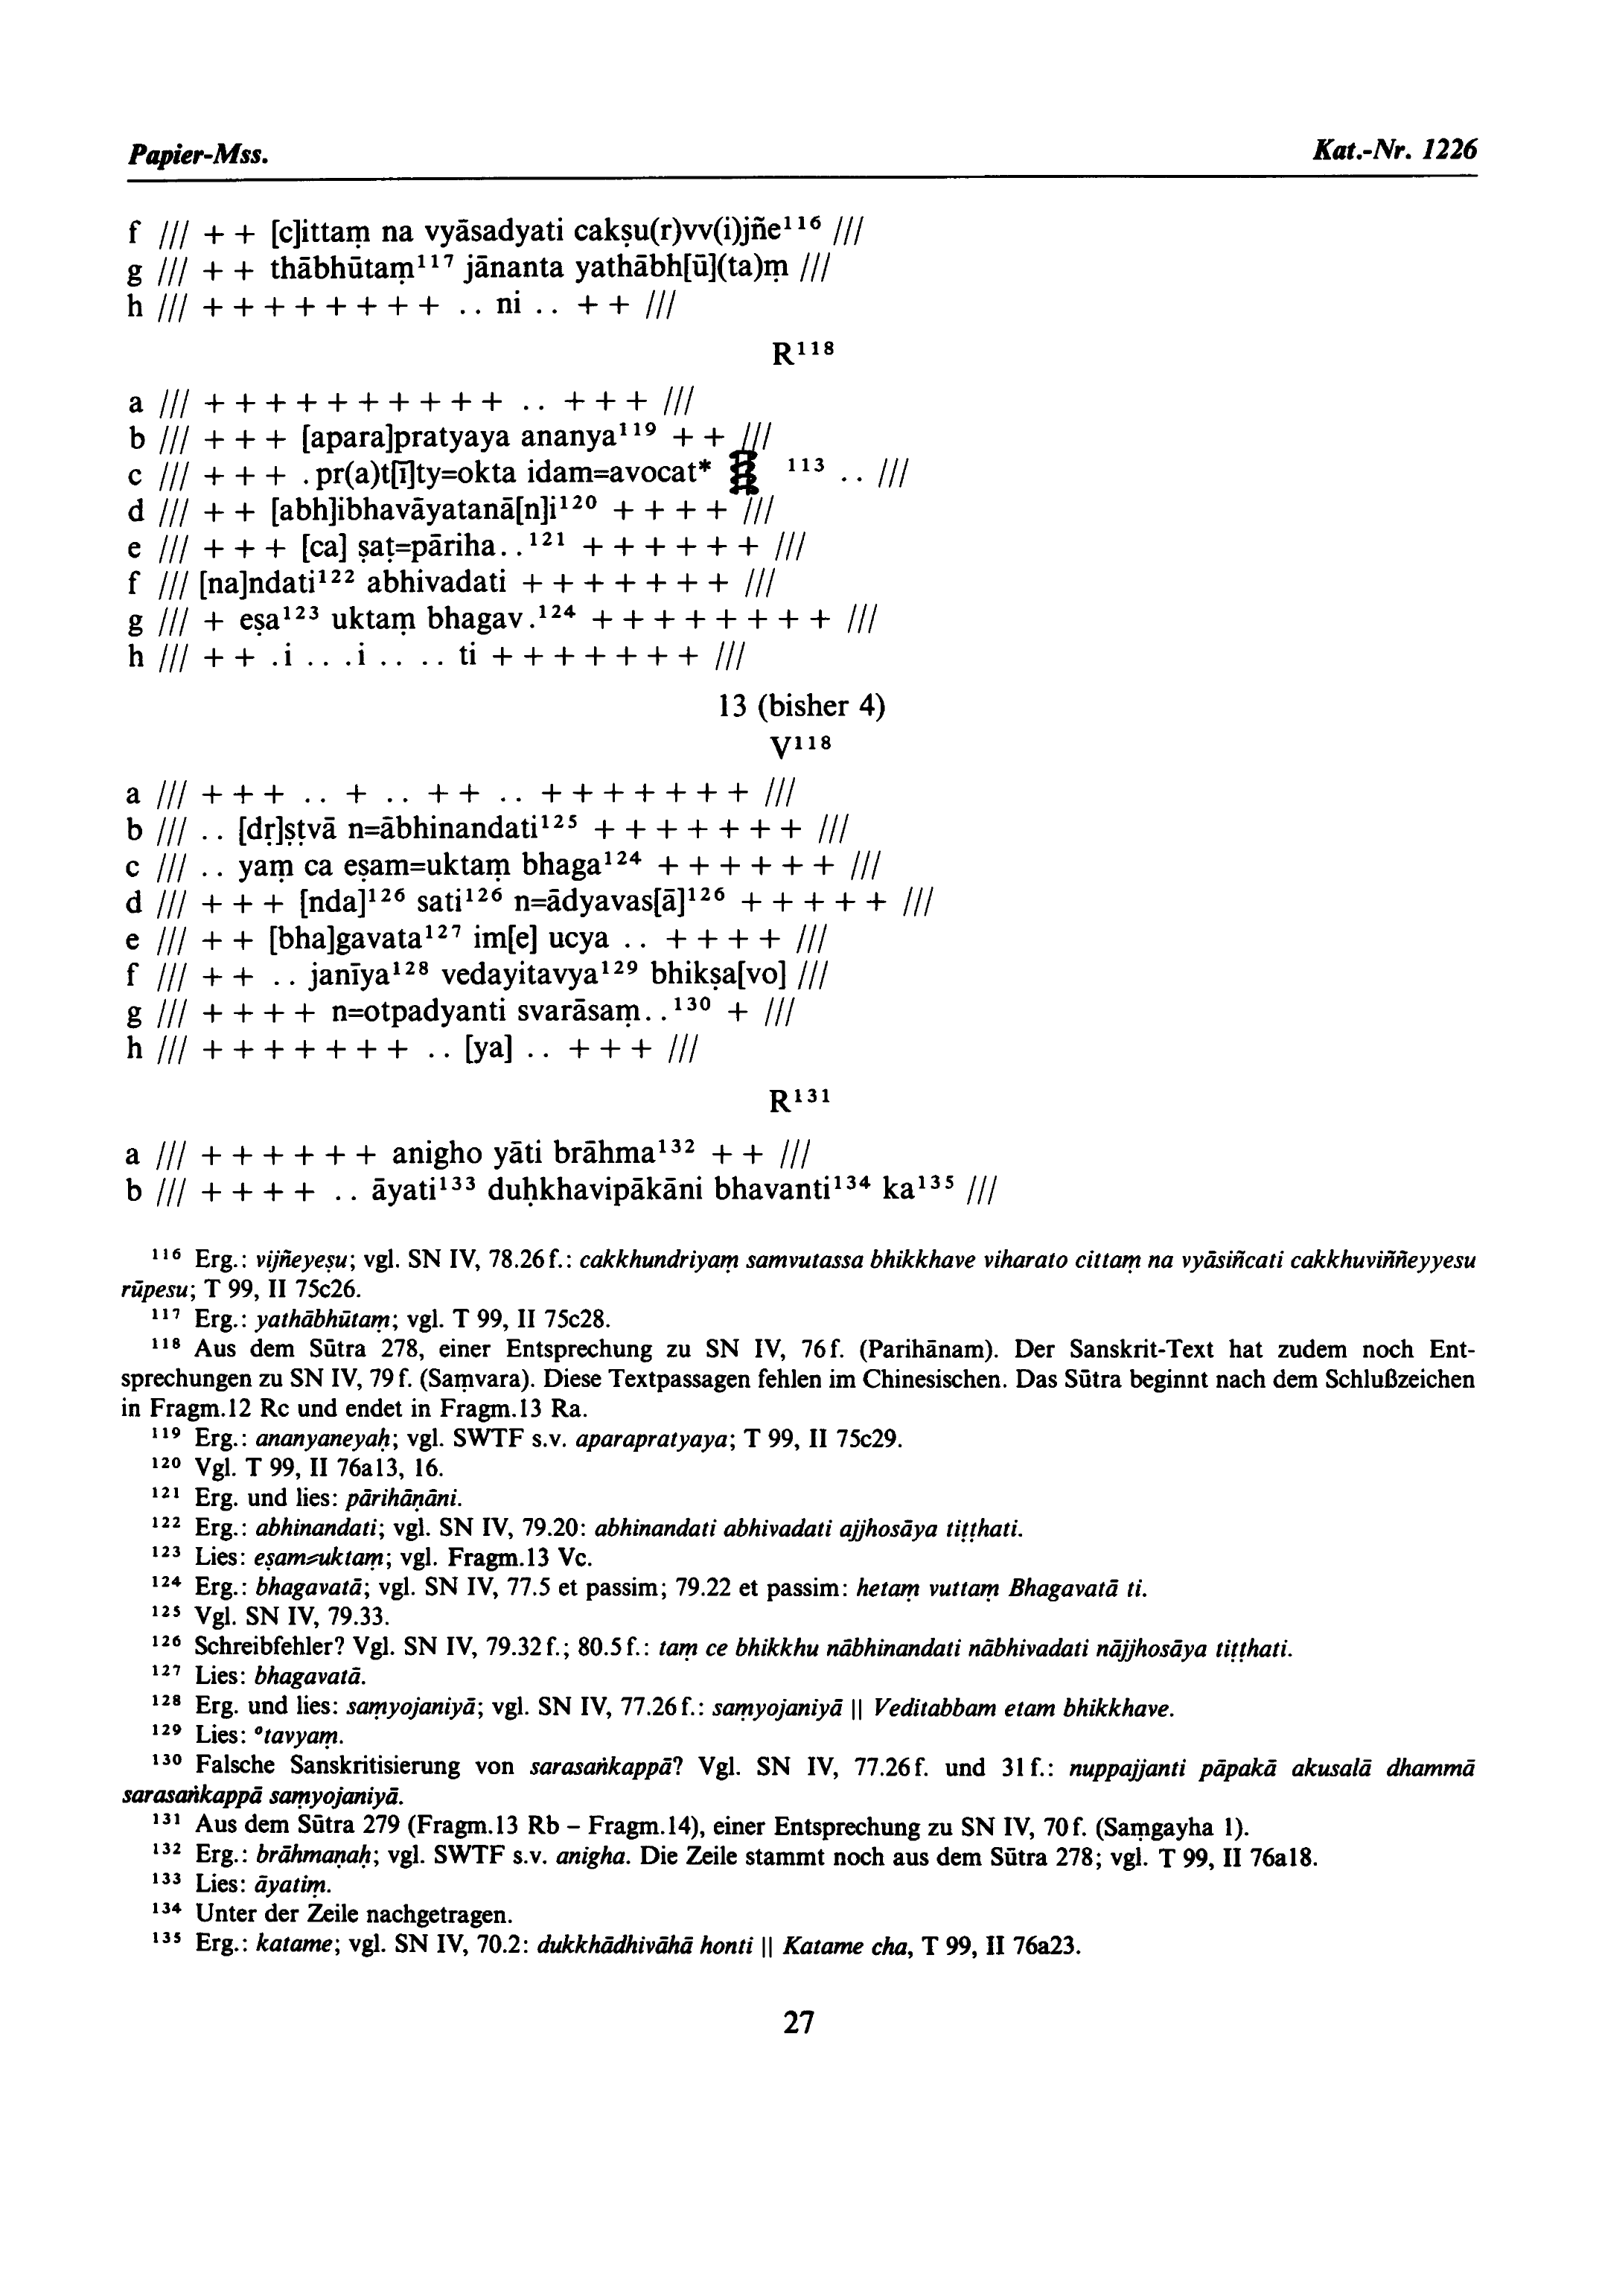 Papier-Mss. Kat.-Nr. 1226
f /// + + [c]ittaṃ na vyāsadyati cakṣu(r)vv(i)jñe¹¹⁶ ///
g /// + + thābhūtaṃ¹¹⁷ jānanta yathābh[ū](ta)ṃ ///
h /// + + + + + + + + .. ni .. + + ///
R¹¹⁸
a /// + + + + + + + + + + .. + + + ///
b /// + + + [apara]pratyaya ananya¹¹⁹ + + ///
c /// + + + . pr(a)t[ī]ty=okta idam=avocat* ¹¹³ .. ///
d /// + + [abh]ibhavāyatanā[n]i¹²⁰ + + + + ///
e /// + + + [ca] ṣaṭ=pāriha..¹²¹ + + + + + + ///
f /// [na]ndati¹²² abhivadati + + + + + + + ///
g /// + eṣa¹²³ uktaṃ bhagav.¹²⁴ + + + + + + + + ///
h /// + + .i .. .i .. .. ti + + + + + + + ///
13 (bisher 4)
V¹¹⁸
a /// + + + .. + .. + + .. + + + + + + + ///
b /// .. [dṛ]ṣṭvā n=ābhinandati¹²⁵ + + + + + + + ///
c /// .. yaṃ ca eṣam=uktaṃ bhaga¹²⁴ + + + + + + ///
d /// + + + [nda]¹²⁶ sati¹²⁶ n=ādyavas[ā]¹²⁶ + + + + + ///
e /// + + [bha]gavata¹²⁷ im[e] ucya .. + + + + ///
f /// + + .. janīya¹²⁸ vedayitavya¹²⁹ bhikṣa[vo] ///
g /// + + + + n=otpadyanti svarāsaṃ..¹³⁰ + ///
h /// + + + + + + + .. [ya] .. + + + ///
R¹³¹
a /// + + + + + + anigho yāti brāhma¹³² + + ///
b /// + + + + .. āyati¹³³ duḥkhavipākāni bhavanti¹³⁴ ka¹³⁵ ///
¹¹⁶ Erg.: vijñeyeṣu; vgl. SN IV, 78.26 f.: cakkhundriyaṃ samvutassa bhikkhave viharato cittaṃ na vyāsiñcati cakkhuviññeyyesu
rūpesu; T 99, II 75c26.
¹¹⁷ Erg.: yathābhūtaṃ; vgl. T 99, II 75c28.
¹¹⁸ Aus dem Sūtra 278, einer Entsprechung zu SN IV, 76 f. (Parihānam). Der Sanskrit-Text hat zudem noch Ent-
sprechungen zu SN IV, 79 f. (Saṃvara). Diese Textpassagen fehlen im Chinesischen. Das Sūtra beginnt nach dem Schlußzeichen
in Fragm.12 Rc und endet in Fragm.13 Ra.
¹¹⁹ Erg.: ananyaneyaḥ; vgl. SWTF s.v. aparapratyaya; T 99, II 75c29.
¹²⁰ Vgl. T 99, II 76a13, 16.
¹²¹ Erg. und lies: pārihāṇāni.
¹²² Erg.: abhinandati; vgl. SN IV, 79.20: abhinandati abhivadati ajjhosāya tiṭṭhati.
¹²³ Lies: eṣam=uktaṃ; vgl. Fragm.13 Vc.
¹²⁴ Erg.: bhagavatā; vgl. SN IV, 77.5 et passim; 79.22 et passim: hetaṃ vuttaṃ Bhagavatā ti.
¹²⁵ Vgl. SN IV, 79.33.
¹²⁶ Schreibfehler? Vgl. SN IV, 79.32 f.; 80.5 f.: taṃ ce bhikkhu nābhinandati nābhivadati nājjhosāya tiṭṭhati.
¹²⁷ Lies: bhagavatā.
¹²⁸ Erg. und lies: saṃyojaniyā; vgl. SN IV, 77.26 f.: saṃyojaniyā || Veditabbam etam bhikkhave.
¹²⁹ Lies: °tavyaṃ.
¹³⁰ Falsche Sanskritisierung von sarasaṅkappā? Vgl. SN IV, 77.26 f. und 31 f.: nuppajjanti pāpakā akusalā dhammā
sarasaṅkappā saṃyojaniyā.
¹³¹ Aus dem Sūtra 279 (Fragm.13 Rb – Fragm.14), einer Entsprechung zu SN IV, 70 f. (Saṃgayha 1).
¹³² Erg.: brāhmaṇaḥ; vgl. SWTF s.v. anigha. Die Zeile stammt noch aus dem Sūtra 278; vgl. T 99, II 76a18.
¹³³ Lies: āyatiṃ.
¹³⁴ Unter der Zeile nachgetragen.
¹³⁵ Erg.: katame; vgl. SN IV, 70.2: dukkhādhivāhā honti || Katame cha, T 99, II 76a23.
27